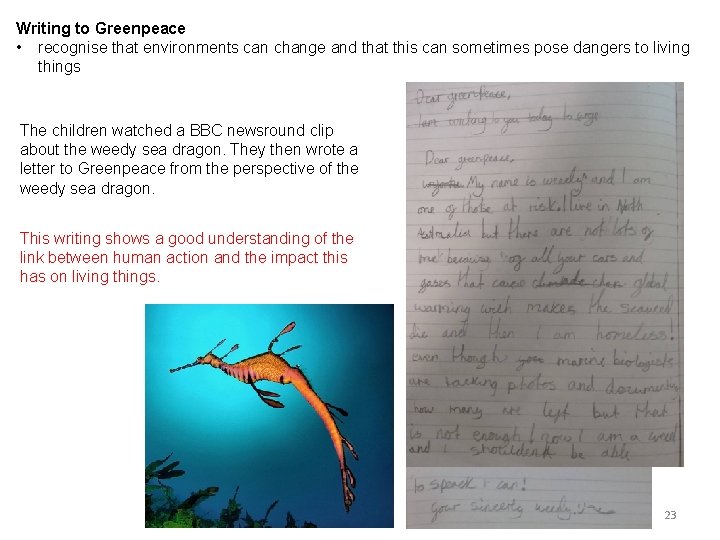 Writing to Greenpeace
• recognise that environments can change and that this can sometimes pose dangers to living
things
The children watched a BBC newsround clip
about the weedy sea dragon. They then wrote a
letter to Greenpeace from the perspective of the
weedy sea dragon.
This writing shows a good understanding of the
link between human action and the impact this
has on living things.
Dear greenpeace,
I am writing to you today to
Dear greenpeace,
My name is weedy and I am
one of those at risk. I live in North
Australia but there are not lots of
me because og all your cars and
gases that cause global
warming wich makes the seaweed
die and then I am homeless!
even though marine biologists
are tacking photos and documenting
how many are left but that
is not enough I now I am a weed
and I shoulden't be able
to speack I can!
your sincerly weedy.
23